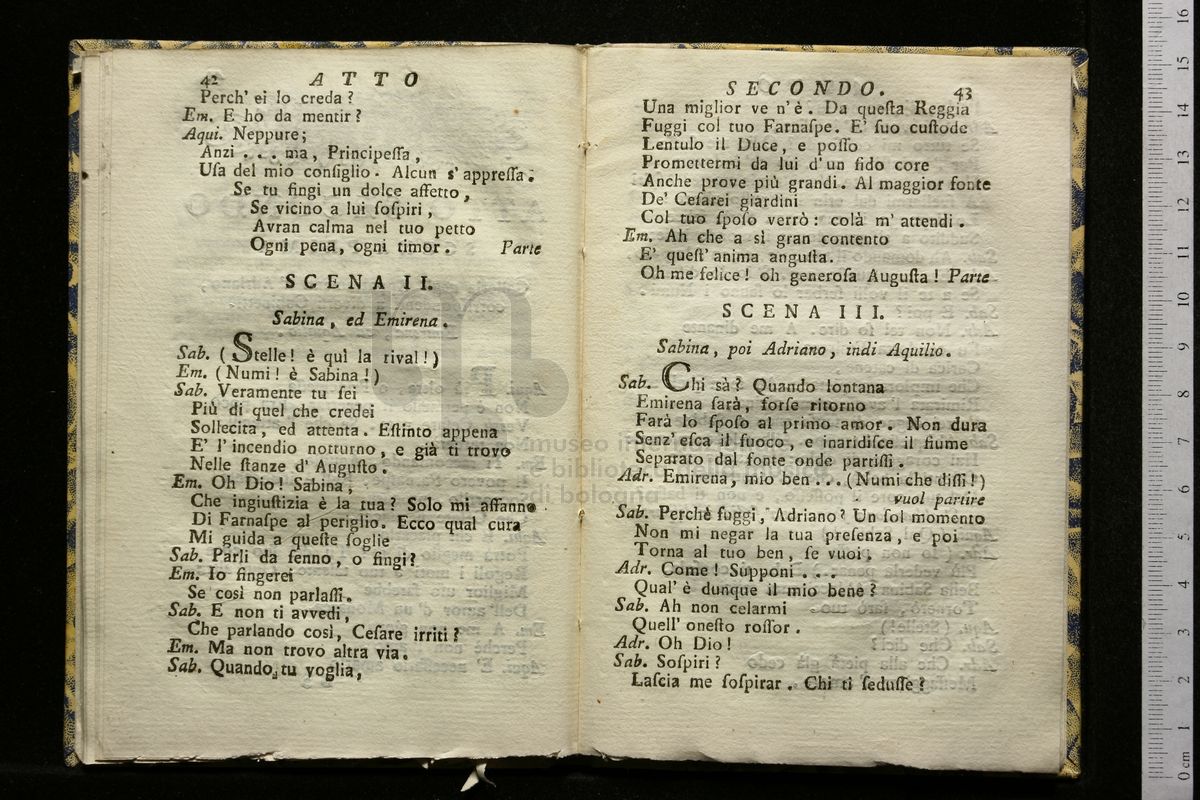 42 ATTO
Perch' ei lo creda?
Em. E ho da mentir?
Aqui. Neppure;
Anzi . . . ma, Principeſſa,
Uſa del mio conſiglio. Alcun s' appreſſa.
Se tu fingi un dolce affetto,
Se vicino a lui ſoſpiri,
Avran calma nel tuo petto
Ogni pena, ogni timor. Parte
SCENA II.
Sabina, ed Emirena.
Sab. (Stelle! è quì la rival!)
Em. (Numi! è Sabina!)
Sab. Veramente tu ſei
Più di quel che credei
Sollecita, ed attenta. Eſtinto appena
E' l' incendio notturno, e già ti trovo
Nelle ſtanze d' Auguſto.
Em. Oh Dio! Sabina,
Che ingiuſtizia è la tua? Solo mi affanno
Di Farnaſpe al periglio. Ecco qual cura
Mi guida a queſte ſoglie
Sab. Parli da ſenno, o fingi?
Em. Io fingerei
Se così non parlaſſi.
Sab. E non ti avvedi,
Che parlando così, Ceſare irriti?
Em. Ma non trovo altra via.
Sab. Quando tu voglia,
SECONDO. 43
Una miglior ve n' è. Da queſta Reggia
Fuggi col tuo Farnaſpe. E' ſuo cuſtode
Lentulo il Duce, e poſſo
Promettermi da lui d' un fido core
Anche prove più grandi. Al maggior fonte
De' Ceſarei giardini
Col tuo ſpoſo verrò: colà m' attendi.
Em. Ah che a sì gran contento
E' queſt' anima anguſta.
Oh me felice! oh generoſa Auguſta! Parte
SCENA III.
Sabina, poi Adriano, indi Aquilio.
Sab. Chi sà? Quando lontana
Emirena ſarà, forſe ritorno
Farà lo ſpoſo al primo amor. Non dura
Senz' eſca il fuoco, e inaridiſce il fiume
Separato dal fonte onde partiſſi.
Adr. Emirena, mio ben . . . (Numi che diſſi!)
vuol partire
Sab. Perchè fuggi, Adriano? Un ſol momento
Non mi negar la tua preſenza, e poi
Torna al tuo ben, ſe vuoi.
Adr. Come! Supponi . . .
Qual' è dunque il mio bene?
Sab. Ah non celarmi
Quell' oneſto roſſor.
Adr. Oh Dio!
Sab. Soſpiri?
Laſcia me ſoſpirar. Chi ti ſeduſſe?